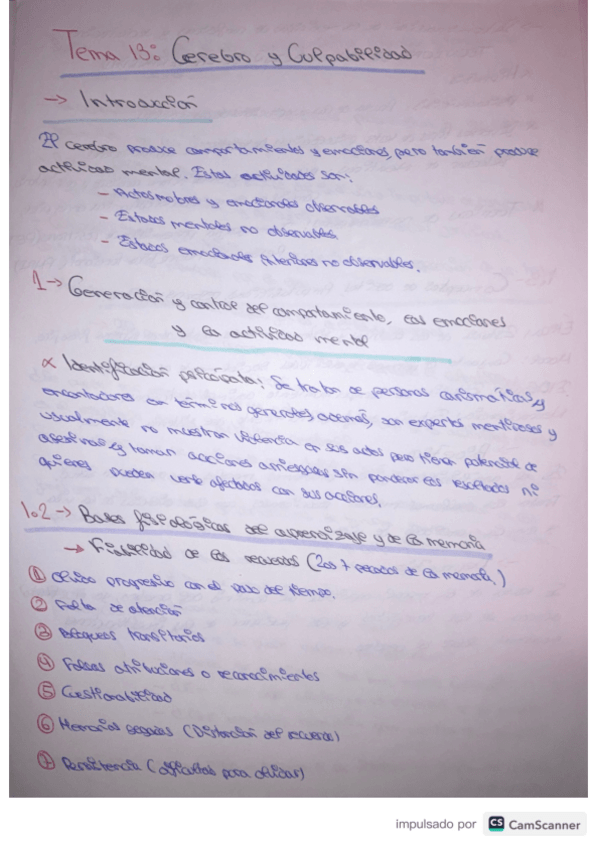 Tema 13: Cerebro y Culpabilidad
→ Introducción
El cerebro produce comportamientos y emociones, pero también produce
actividad mental. Estas actividades son:
- Actos motores y emocionales observables
- Estados mentales no observables
- Estados emocionales internos no observables.
1 → Generación y control del comportamiento, las emociones
y la actividad mental
∝ Identificación psicópata: Se tratan de personas carismáticas y
encantadoras en términos generales, además, son expertos mentirosos y
usualmente no muestran violencia en sus actos pero tienen potencial de
y toman acciones arriesgadas sin ponderar los resultados ni
quienes pueden verse afectados con sus acciones.
1.2 → Bases fisiológicas del aprendizaje y de la memoria
→ Fiabilidad de los recuerdos (Los 7 pecados de la memoria)
① Olvido progresivo con el paso del tiempo.
② Falta de atención
③ Bloqueos transitorios
④ Falsas atribuciones o reconocimientos
⑤ Gestionabilidad
⑥ Memorias sesgadas (Distorsión del recuerdo)
⑦ Persistencia (dificultad para olvidar)
impulsado por CS CamScanner